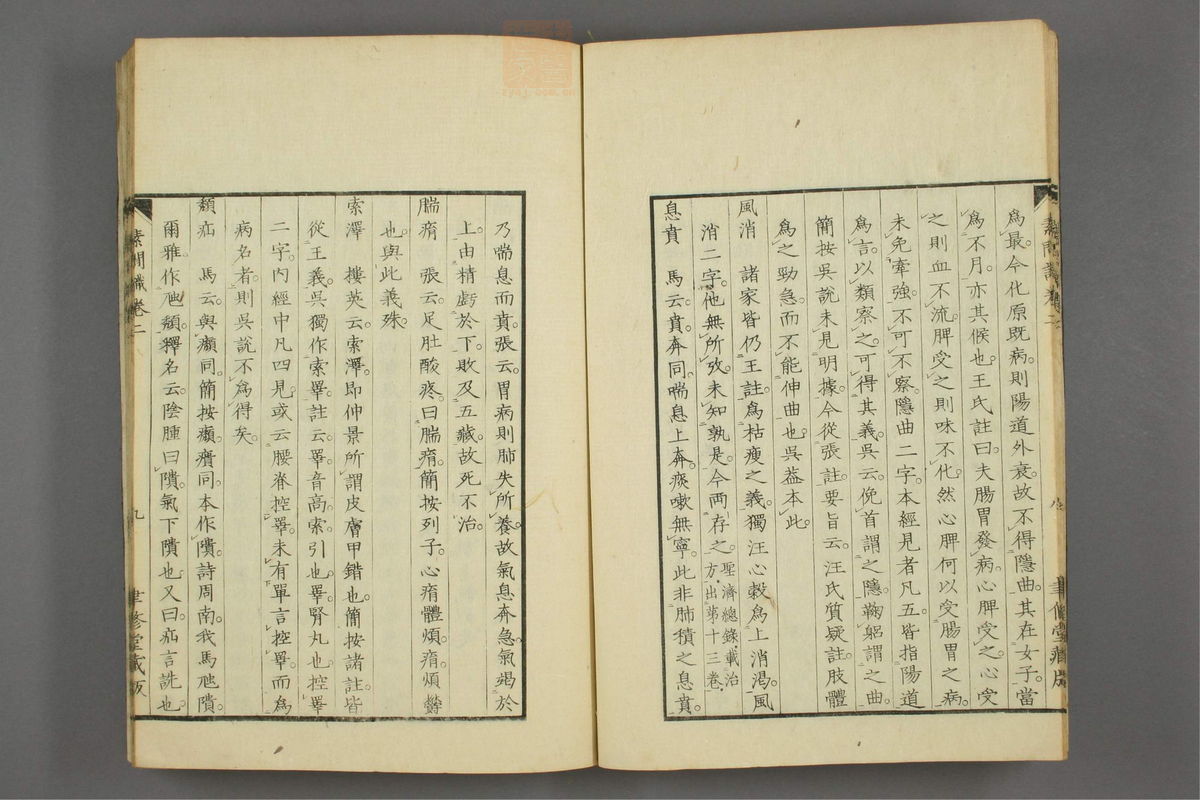 爲最。今化原既病。則陽道外衰。故不得隱曲。其在女子。當
爲不月。亦其候也。王氏註曰。夫腸胃發病。心脾受之。心受
之則血不流。脾受之則味不化。然心脾何以受腸胃之病。
未免牽強。不可不察。隱曲二字。本經見者凡五。皆指陽道
爲言。以類察之。可得其義。吳云。俛首謂之隱。鞠躬謂之曲。
簡按吳說未見明據。今從張註要旨云。汪氏質疑註。肢體
爲之勁急。而不能伸曲也。吳葢本此。
風消　諸家皆仍王註。爲枯瘦之義。獨汪心穀爲上消渴。風
消二字。他無所攷。未知孰是。今兩存之。聖濟總錄。載治
方。出第十三卷。
息賁　馬云。賁。奔同。喘息上奔。痰嗽無寧。此非肺積之息賁。
素問識卷二
八
聿修堂藏版
乃喘息而賁。張云。胃病則肺失所養。故氣息奔急。氣竭於
上。由精虧於下。敗及五藏。故死不治。
腨㾓　張云。足肚酸疼。曰腨㾓。簡按列子。心㾓體煩。㾓。煩鬱
也。與此義殊。
索澤　樓英云。索澤。即仲景所謂皮膚甲錯也。簡按諸註皆
從王義。吳獨作索睪。註云。睪。音高。索。引也。睪。腎丸也。控睪
二字。內經中凡四見。或云腰脊控睪。未有單言控睪。而爲
病名者。則吳說不爲得矣。
㿗疝　馬云。與癲同。簡按癲。㿉同。本作隤。詩周南。我馬虺隤。
爾雅作虺頹。釋名云。陰腫曰隤。氣下隤也。又曰。疝言詵也。
素問識卷二
九
聿修堂藏版